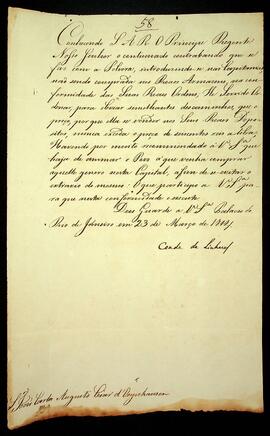 58
Constando S. A. R. O Principe Regente
Nosso Senhor o continuado contrabando que se
faz com a Polvora, introduzindo-se nas Capitanias
não sendo comprada nos Reaes Armazens, na con-
formidade das Suas Reaes Ordens; He Servido Or-
denar, para obviar semilhantes descaminhos, que o
preço, por que ella se vender nos Seus Reaes Depo-
sitos, nunca exceda o preço de seiscentos reis a libra,
Havendo por muito recommendado á V.ª S.ª que
haja de animar o Povo a que venha comprar
aquelle genero nesta Capital, a fim de se evitar o
extravio do mesmo: O que participo a V.ª S.ª pa-
ra que nesta conformidade o execute.
Deos Guarde a V.ª S.ª Palacio do
Rio de Janeiro em 23 de Março de
Conde de Linhares
S.r João Carlos Augusto d'Oeynhausen